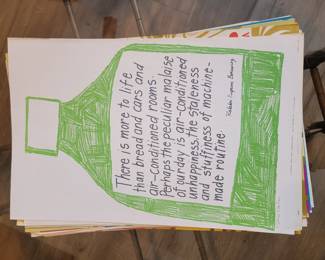 There is more to life
than bread and cars and
air-conditioned rooms.
Perhaps the peculiar malaise
of our day is air-conditioned
unhappiness, the staleness
and stuffiness of machine-
made routine.
Robbin Eugene Browning